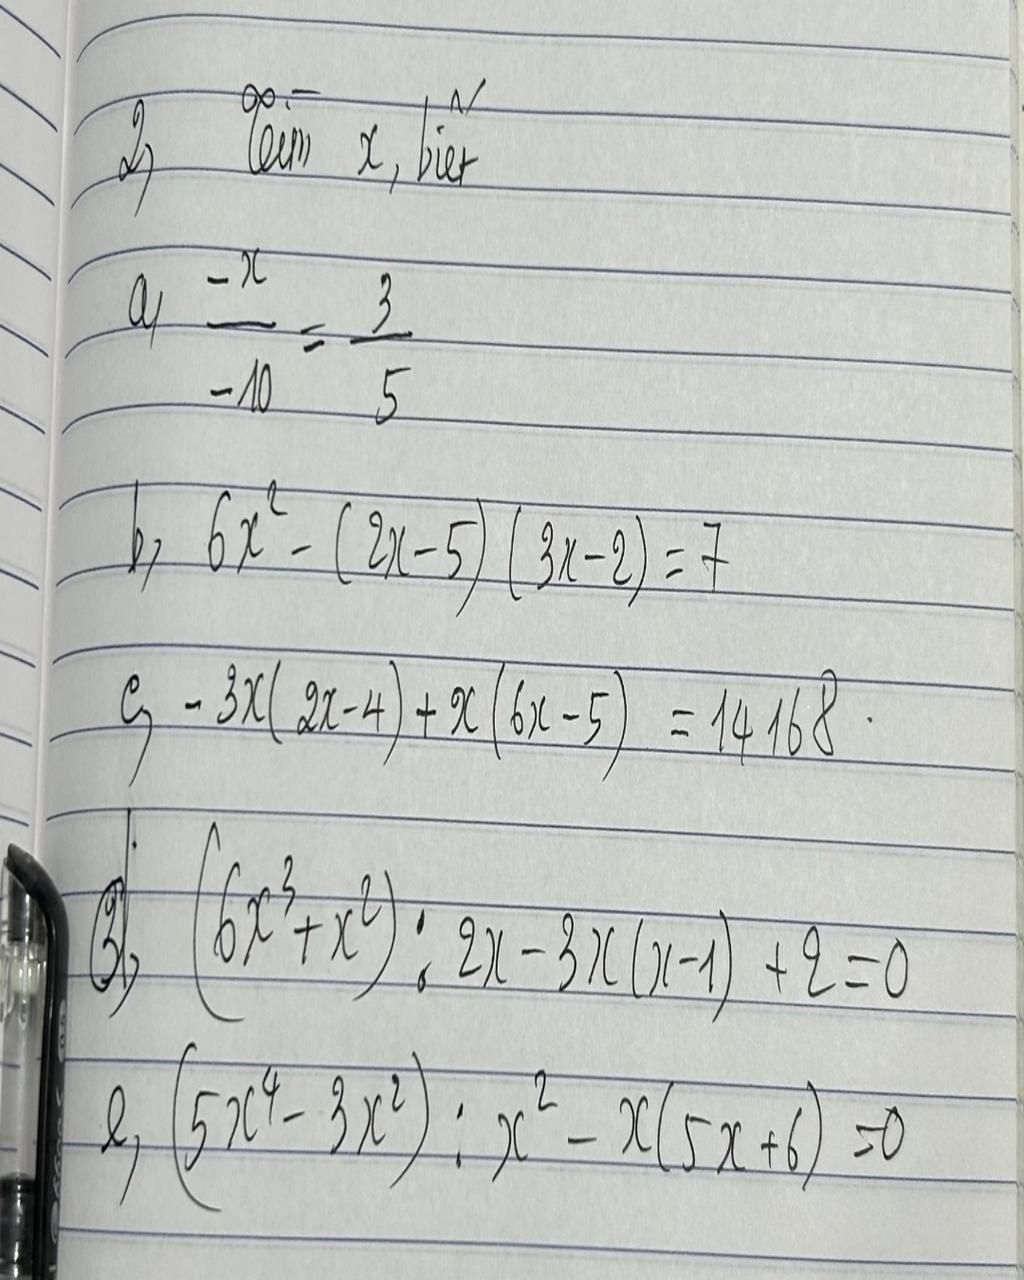 2, Tìm x, biết
a, -x/-10 = 3/5
b, 6x² - (2x-5)(3x-2) = 7
c, -3x(2x-4) + x(6x-5) = 14168.
d, (6x³+x²) : 2x - 3x(x-1) + 2 = 0
e, (5x⁴ - 3x²) : x² - x(5x+6) = 0